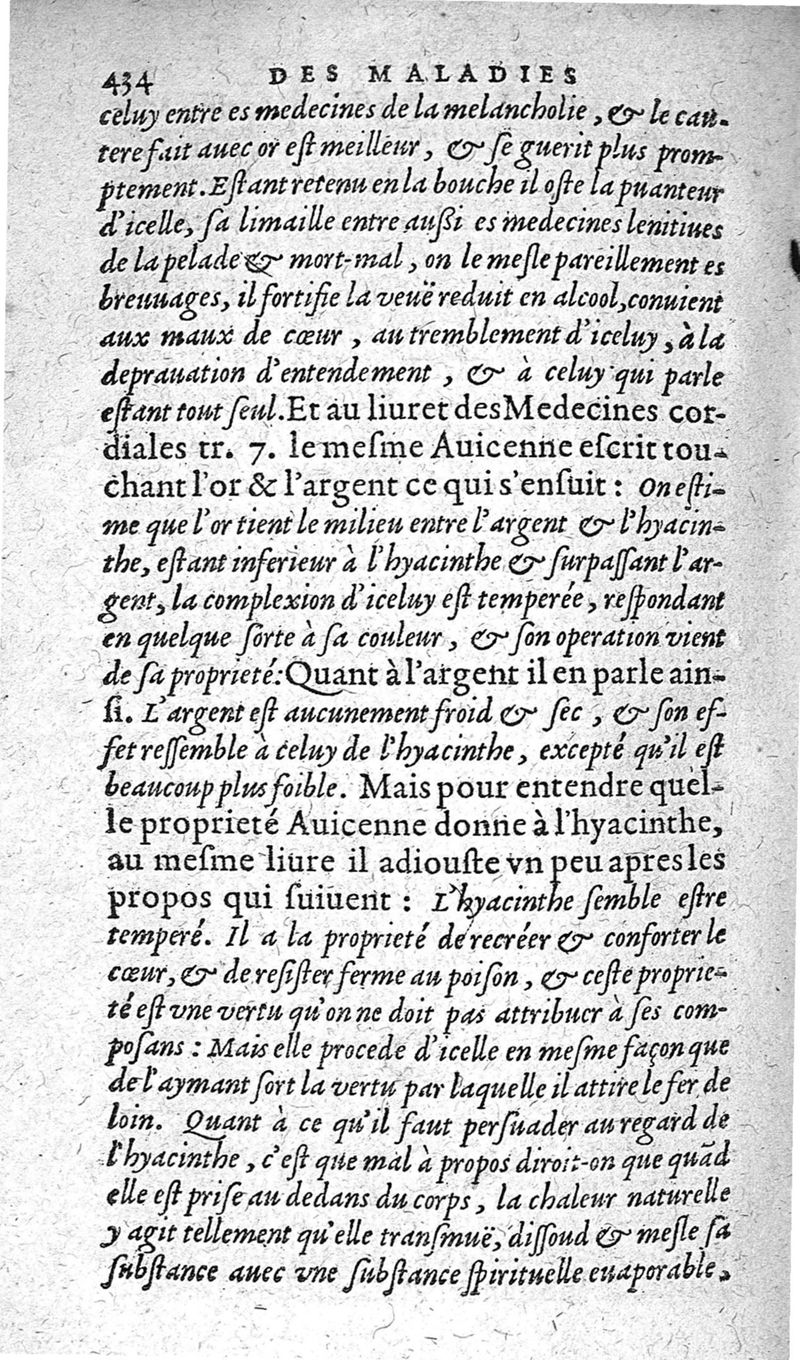 434 DES MALADIES
celuy entre es medecines de la melancholie, & le cau-
tere fait auec or eſt meilleur, & ſe guerit plus prom-
ptement. Eſtant retenu en la bouche il oſte la puanteur
d'icelle, ſa limaille entre auſſi es medecines lenitiues
de la pelade & mort-mal, on le meſle pareillement es
breuuages, il fortifie la veuë reduit en alcool, conuient
aux maux de cœur, au tremblement d'iceluy, à la
deprauation d'entendement, & à celuy qui parle
eſtant tout ſeul. Et au liuret des Medecines cor-
diales tr. 7. le meſme Auicenne eſcrit tou-
chant l'or & l'argent ce qui s'enſuit : On eſti-
me que l'or tient le milieu entre l'argent & l'hyacin-
the, eſtant inferieur à l'hyacinthe & ſurpaſſant l'ar-
gent, la complexion d'iceluy eſt temperée, reſpondant
en quelque ſorte à ſa couleur, & ſon operation vient
de ſa proprieté: Quant à l'argent il en parle ain-
ſi. L'argent eſt aucunement froid & ſec, & ſon ef-
fet reſſemble à celuy de l'hyacinthe, excepté qu'il eſt
beaucoup plus foible. Mais pour entendre quel-
le proprieté Auicenne donne à l'hyacinthe,
au meſme liure il adiouſte vn peu apres les
propos qui ſuiuent : L'hyacinthe ſemble eſtre
temperé. Il a la proprieté de recréer & conforter le
cœur, & de reſiſter ferme au poiſon, & ceſte proprie-
té eſt vne vertu qu'on ne doit pas attribuer à ſes com-
poſans : Mais elle procede d'icelle en meſme façon que
de l'aymant ſort la vertu par laquelle il attire le fer de
loin. Quant à ce qu'il faut perſuader au regard de
l'hyacinthe, c'eſt que mal à propos diroit-on que quãd
elle eſt priſe au dedans du corps, la chaleur naturelle
y agit tellement qu'elle tranſmuë, diſſoud & meſle ſa
ſubſtance auec vne ſubſtance ſpirituelle euaporable,